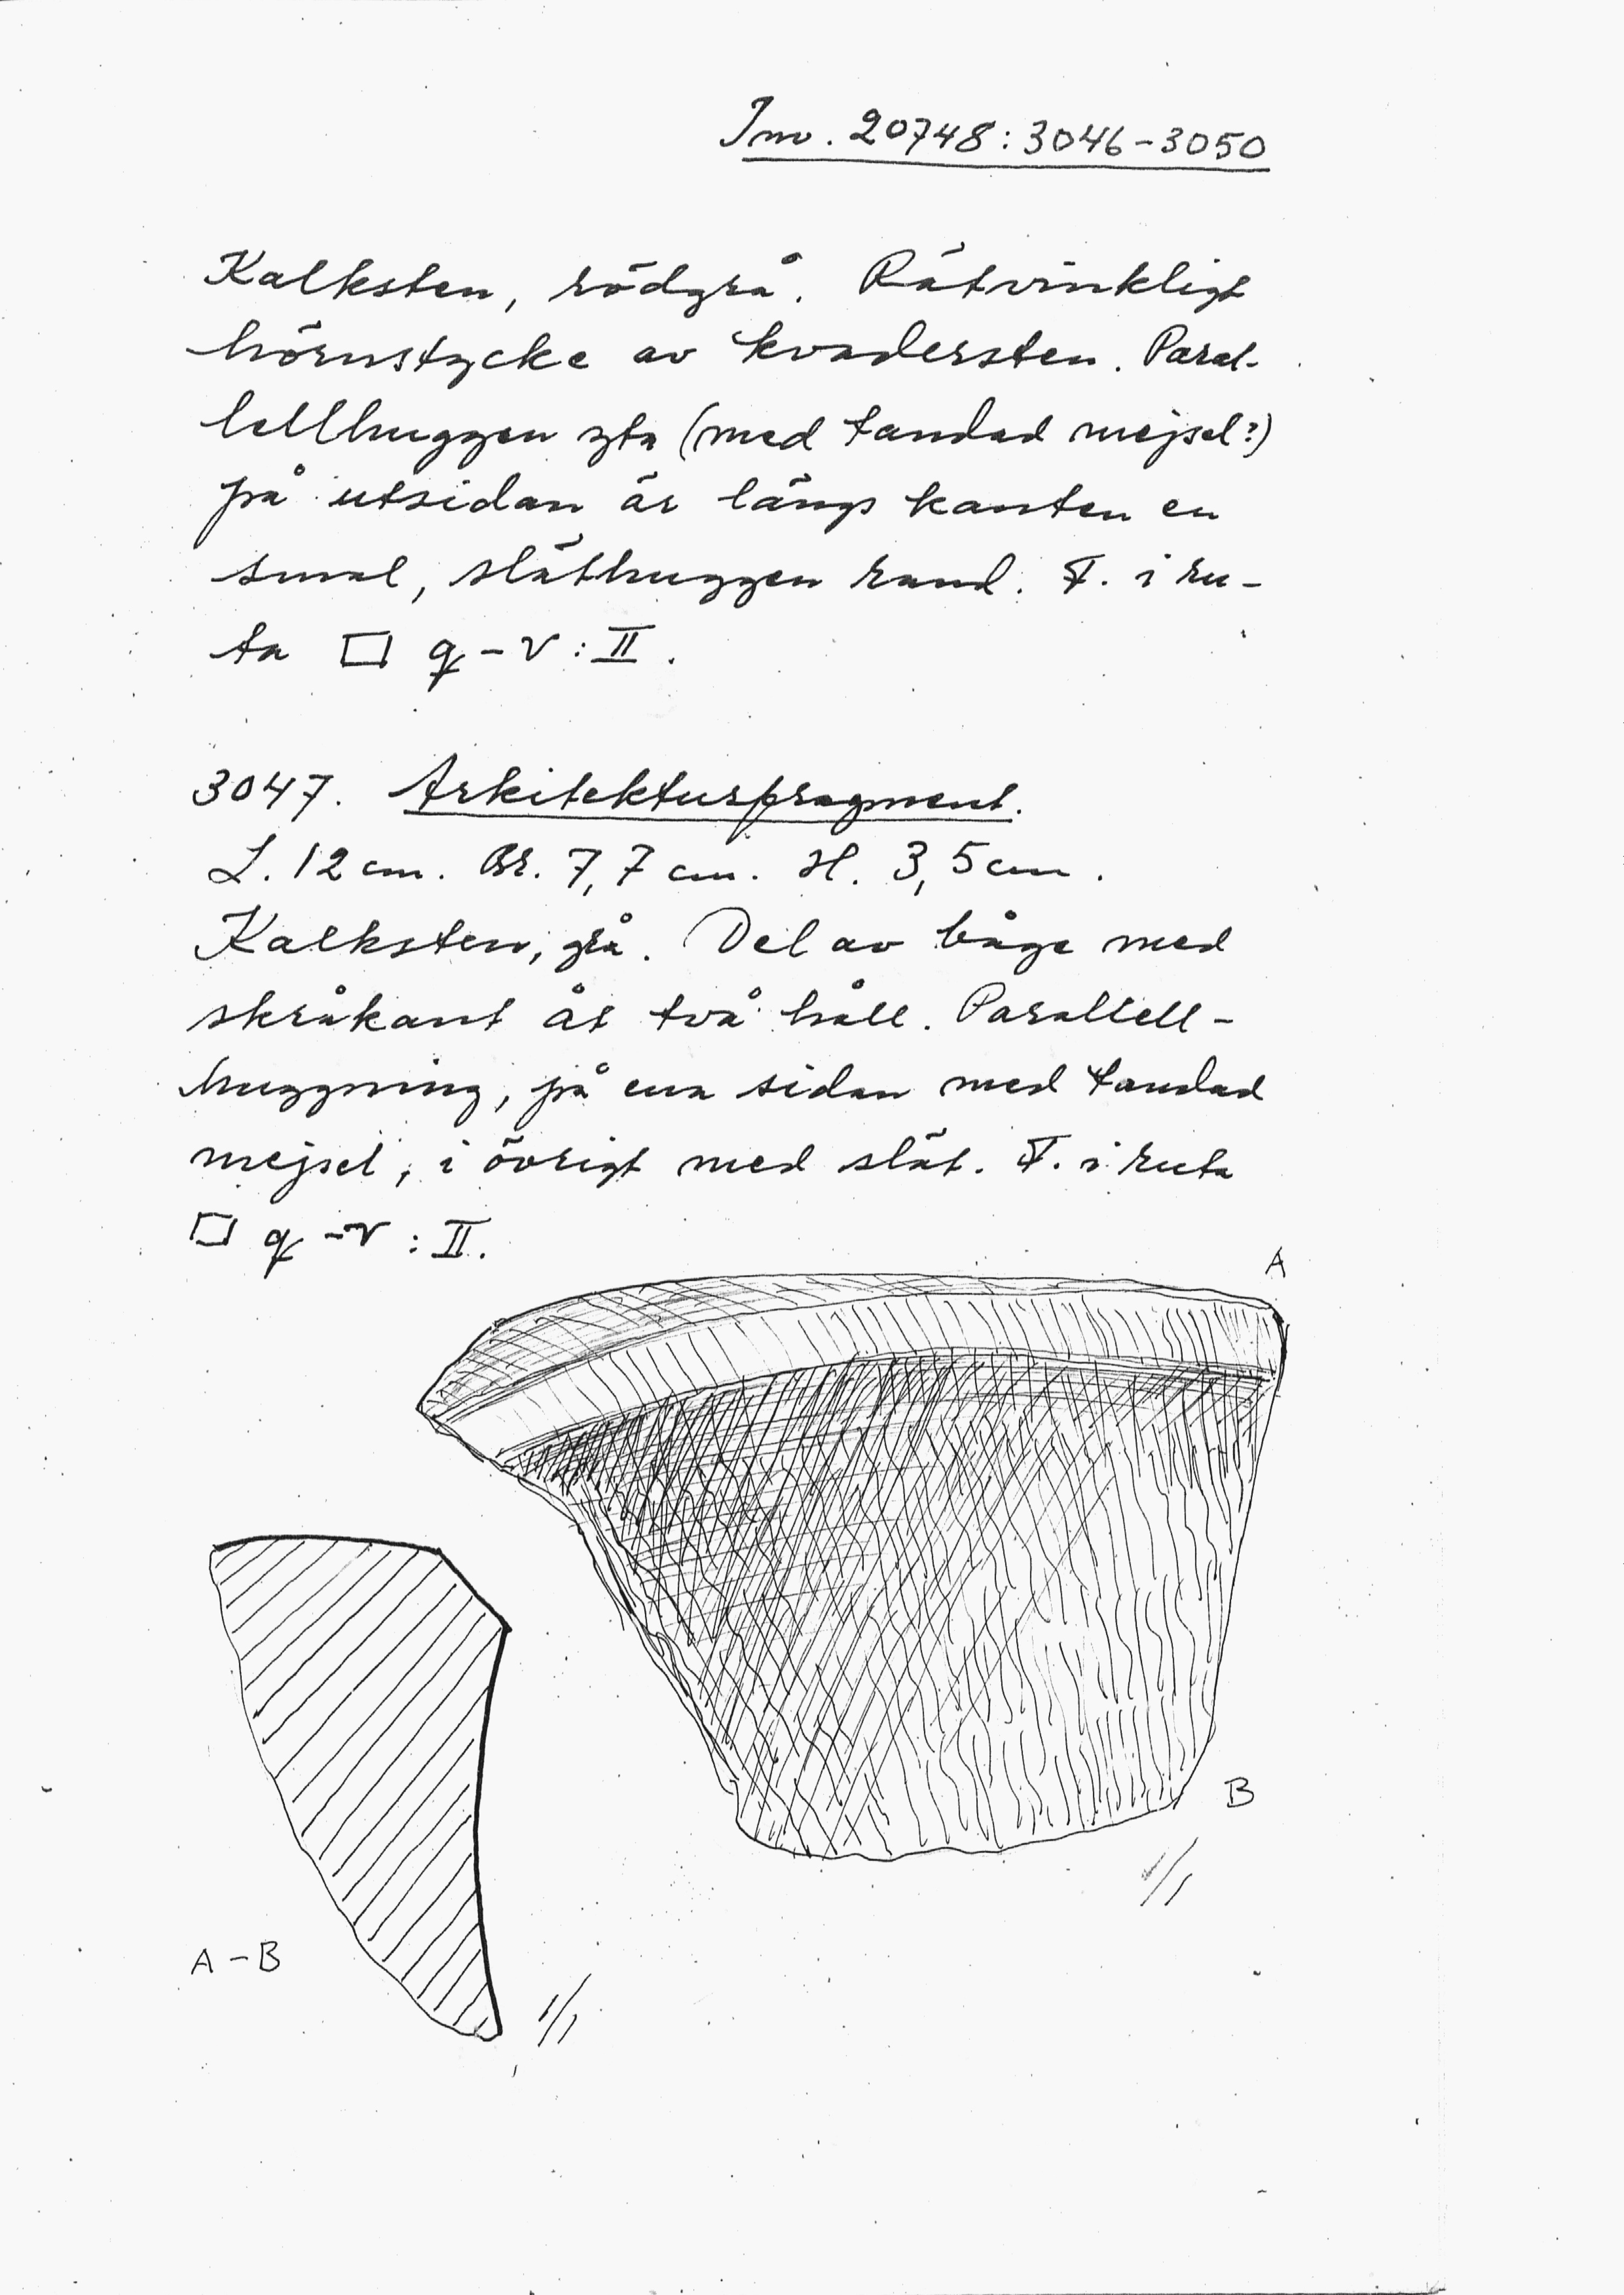 Inv. 20748:3046-3050
Kalksten, rödgrå. Rätvinkligt
hörnstycke av kvadersten. Paral-
lellhuggen yta (med tandad mejsel?)
på utsidan är längs kanten en
smal, släthuggen rand. F. i ru-
ta □ q-v:II.
3047. Arkitekturfragment.
L. 12 cm. Br. 7,7 cm. H. 3,5 cm.
Kalksten, grå. Del av båge med
skråkant åt två håll. Parallell-
huggning, på ena sidan med tandad
mejsel, i övrigt med slät. F. i ruta
□ q-v:II.
A
B
1/1
A-B
1/1